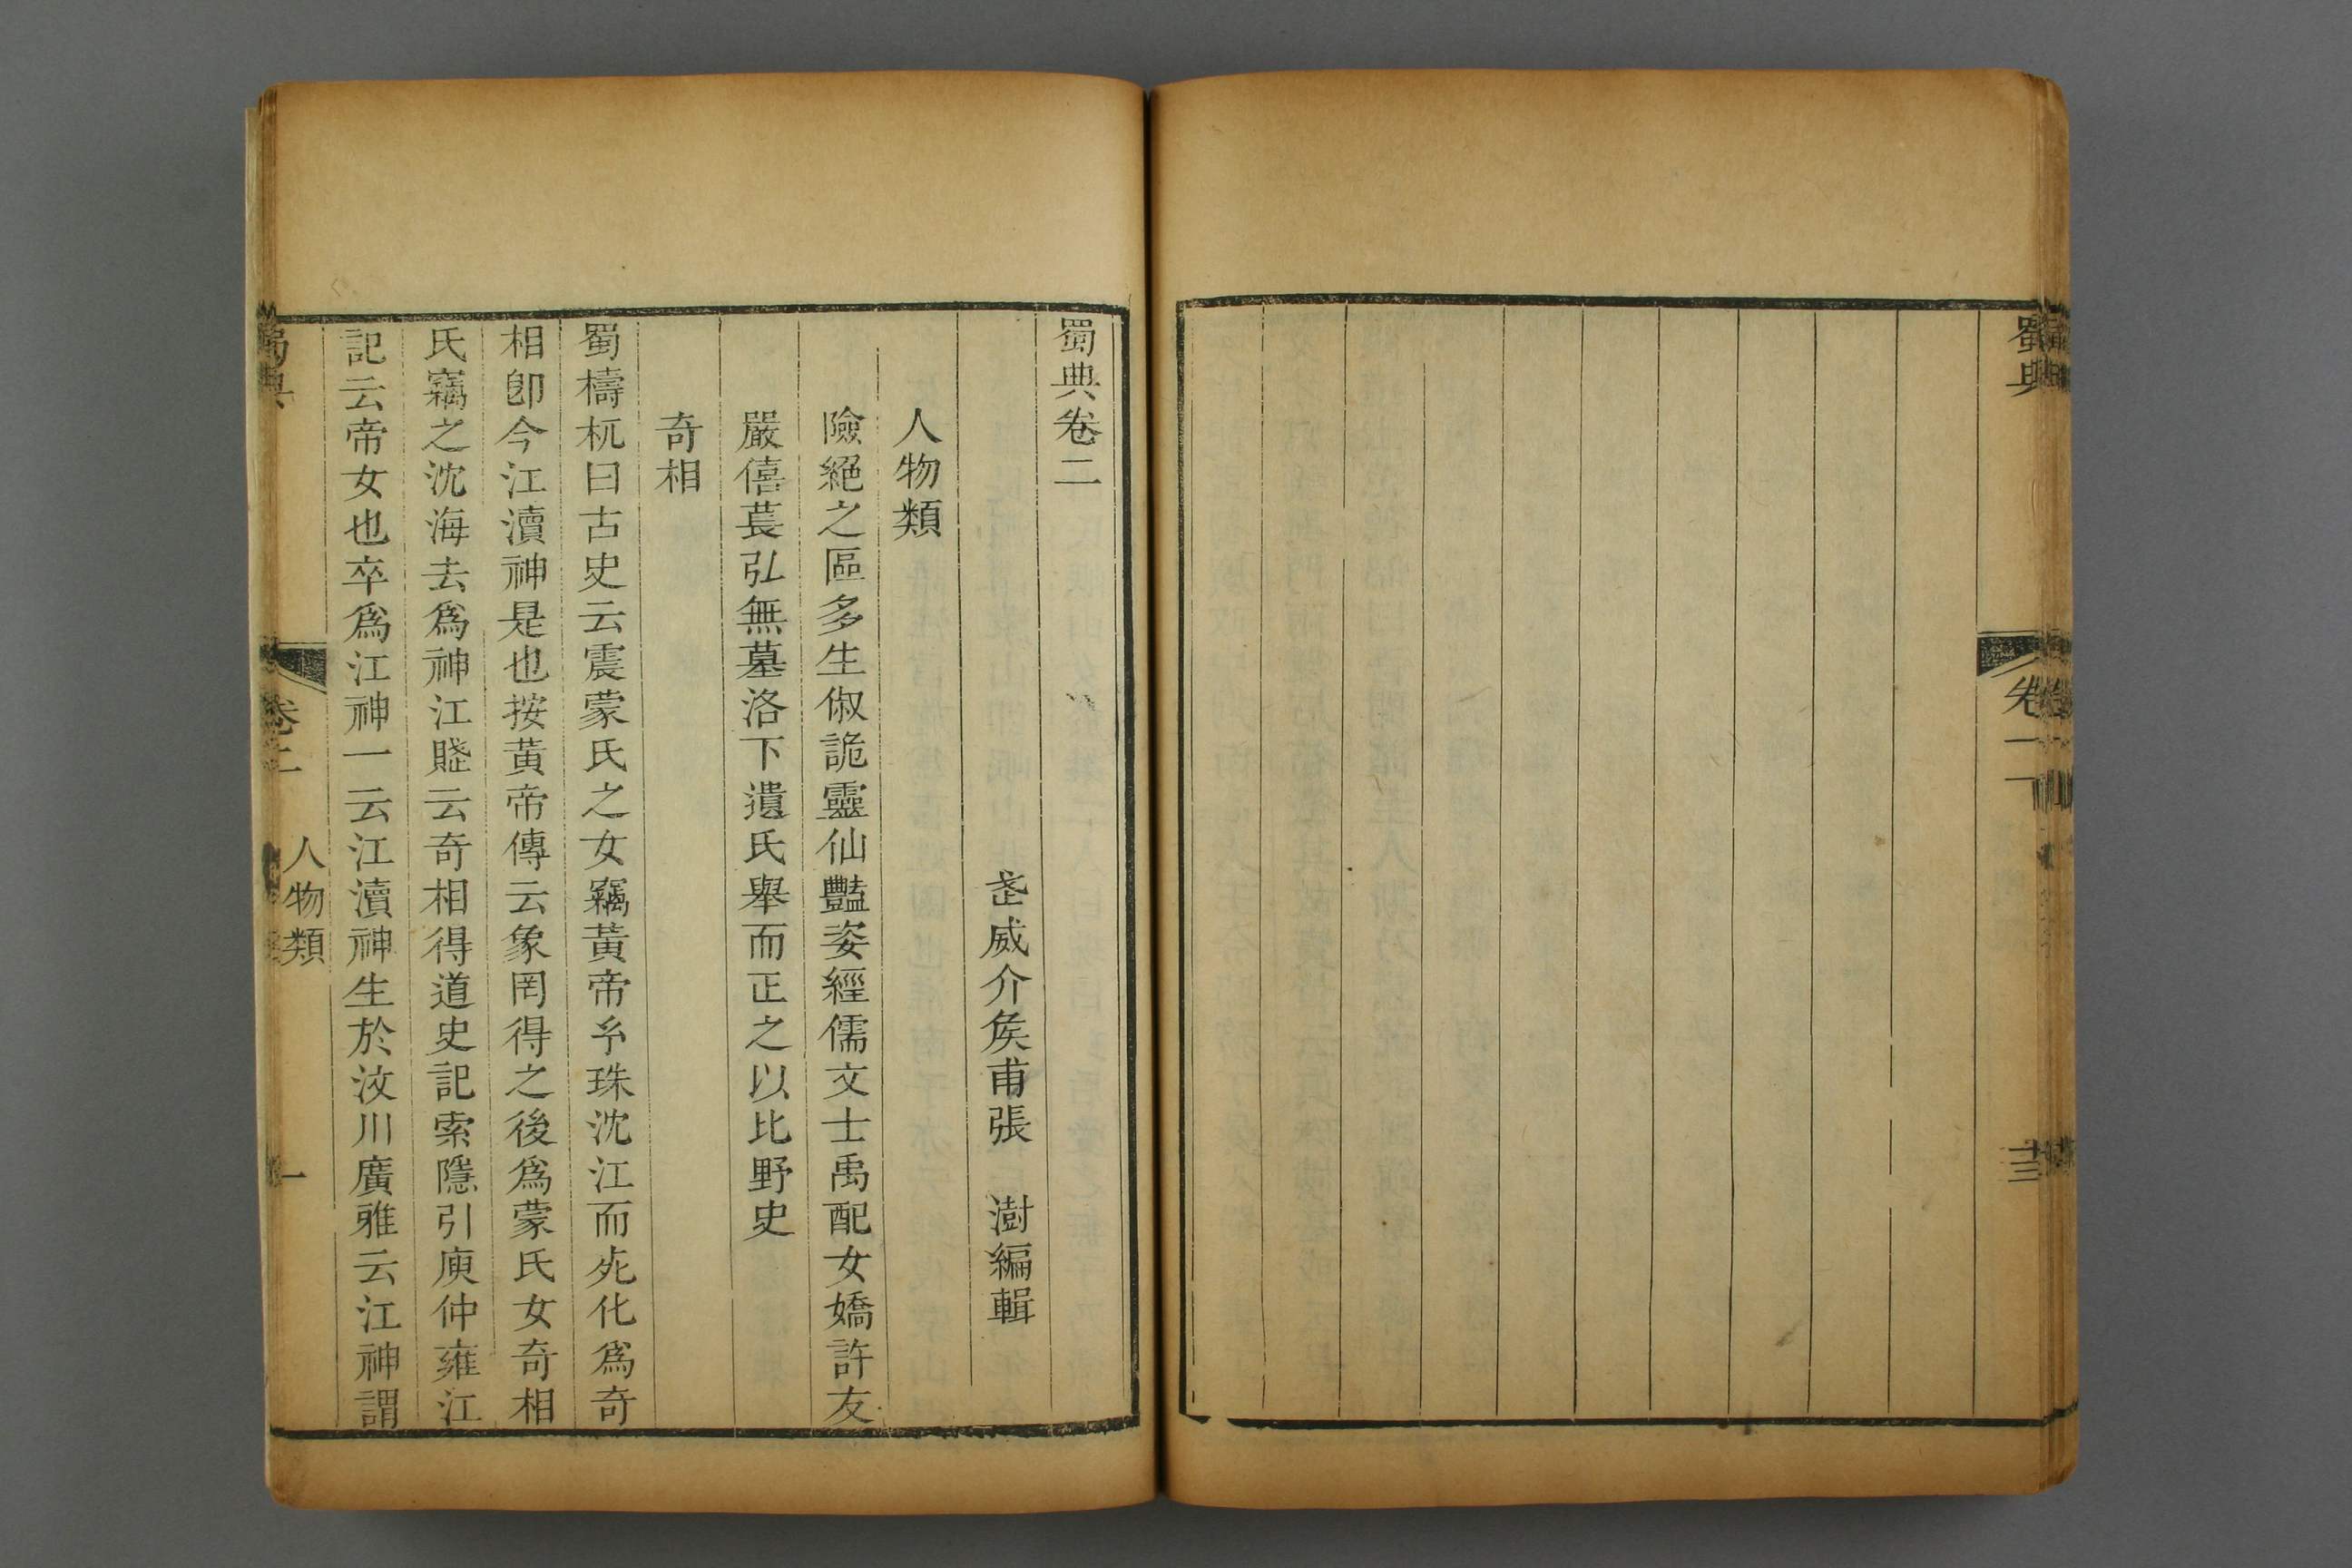 蜀典
卷一
十三
蜀典卷二
武威介矦甫張　澍編輯
人物類
險絕之區多生俶詭靈仙豔姿經儒文士禹配女嬌許友
嚴僖萇弘無墓洛下遺氏舉而正之以比野史
奇相
蜀檮杌曰古史云震蒙氏之女竊黃帝玄珠沈江而死化爲奇
相卽今江瀆神是也按黃帝傳云象罔得之後爲蒙氏女奇相
氏竊之沈海去爲神江賦云奇相得道史記索隱引庾仲雍江
記云帝女也卒爲江神一云江瀆神生於汶川廣雅云江神謂
蜀典
卷二
人物類
一